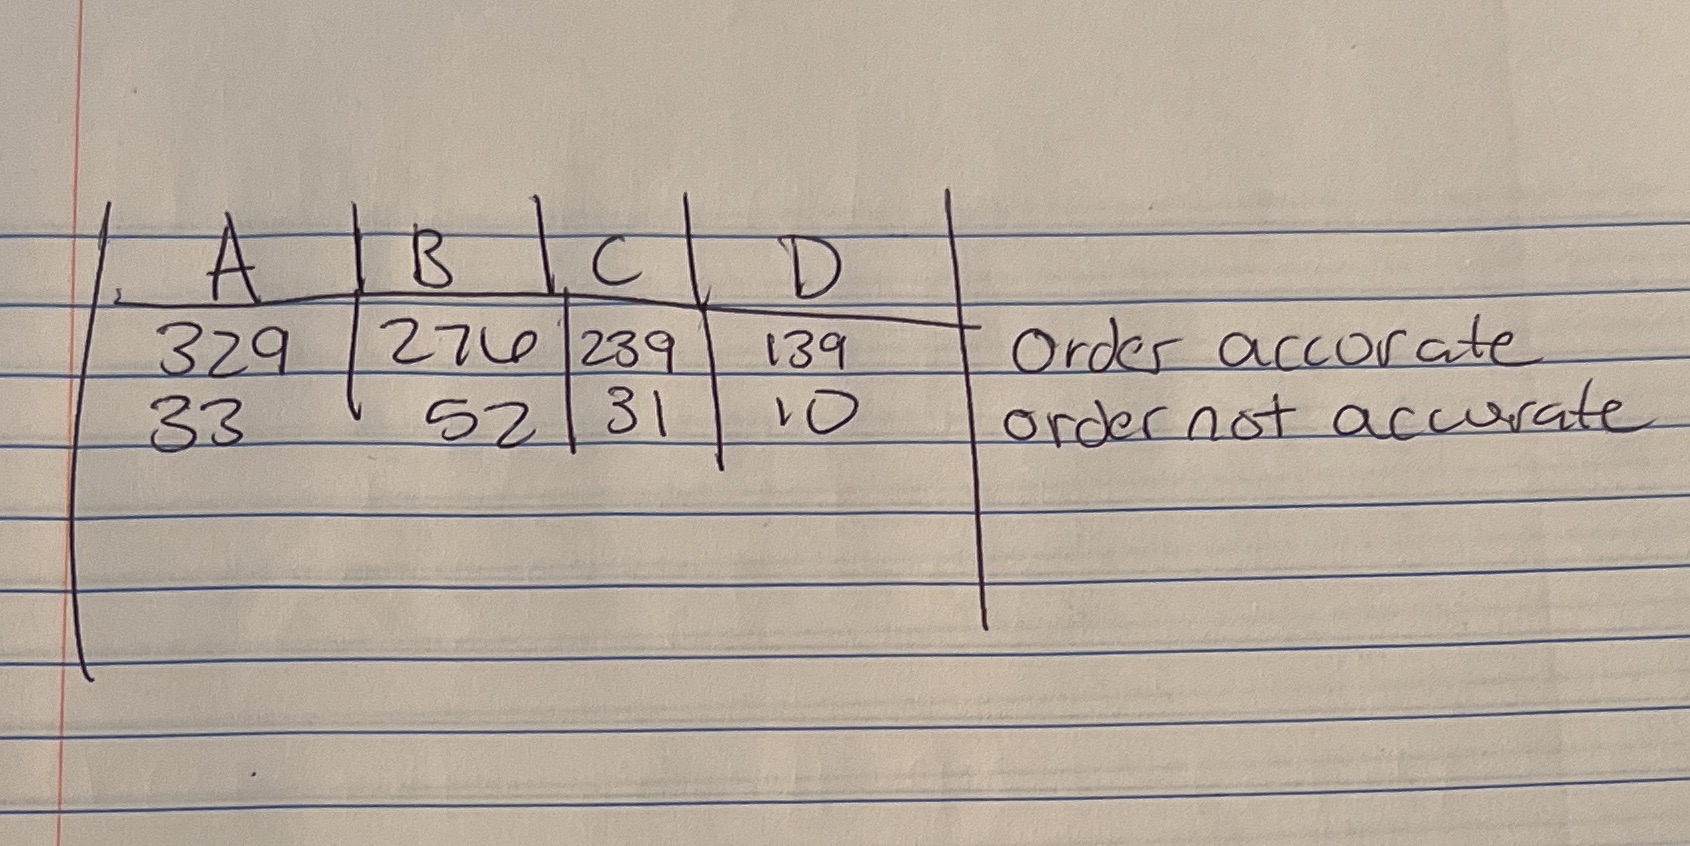 A B C D
329 276 239 139 Order accorate
33 52 31 10 order not accurate